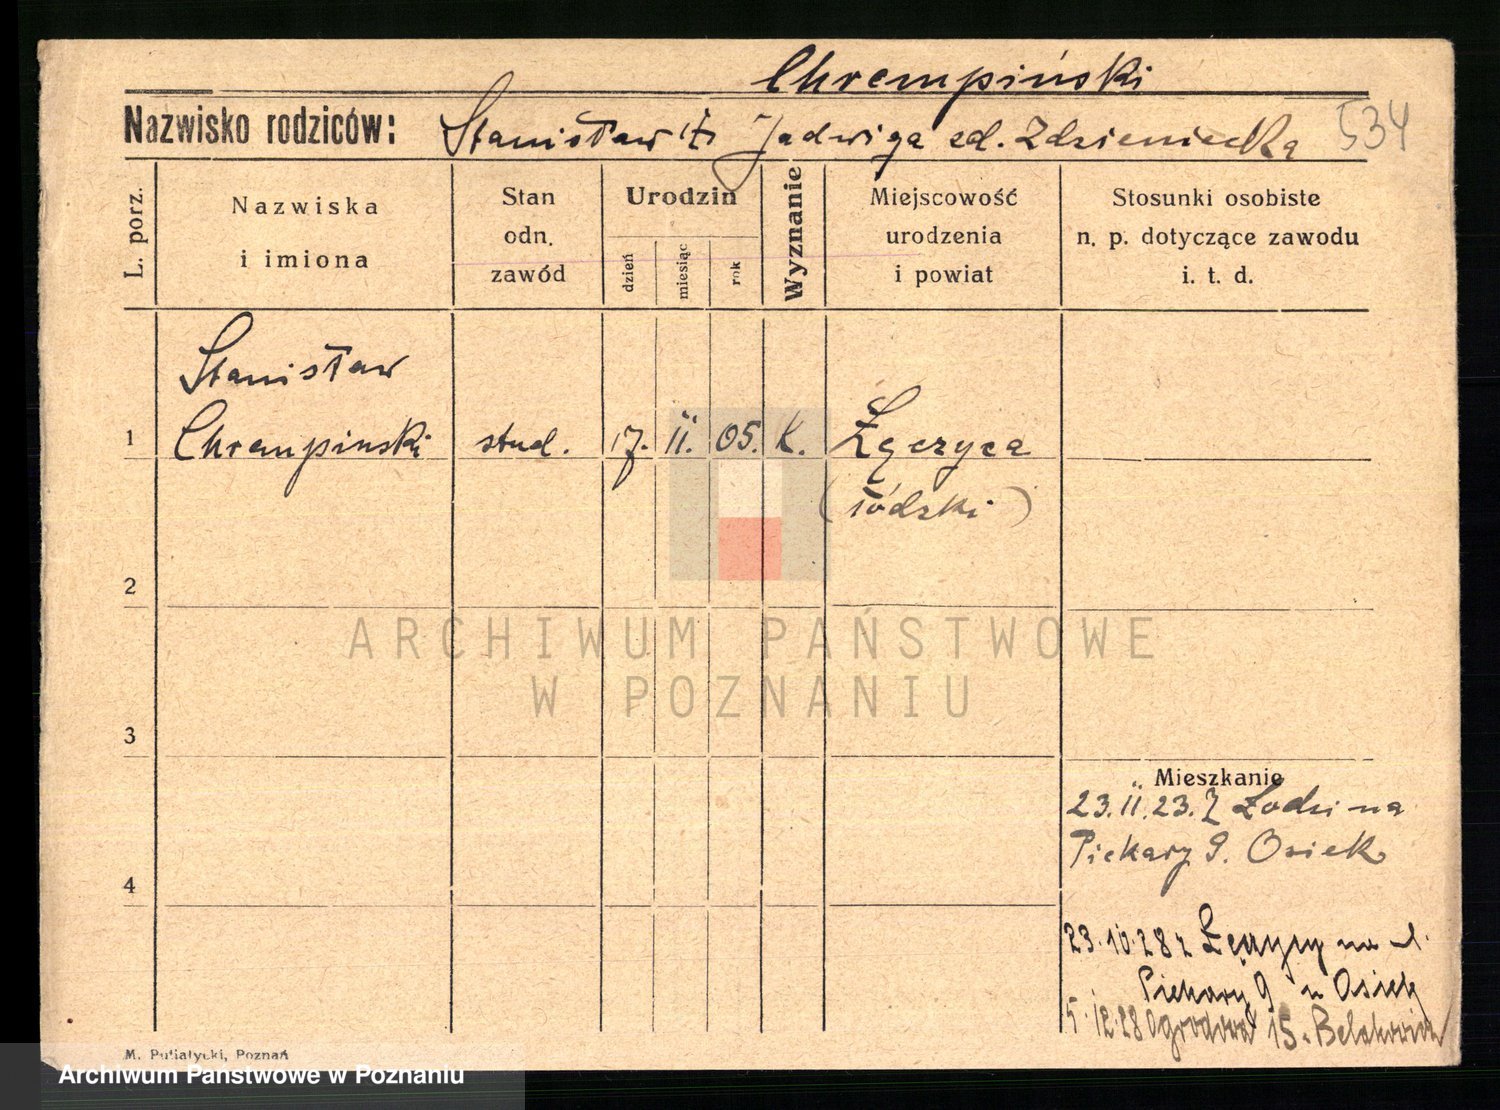 Chrempiński
Nazwisko rodziców: Stanisław i Jadwiga zd. Zdzieniecka 534
L. porz.
Nazwiska
i imiona
Stan
odn.
zawód
Urodzin
dzień
miesiąc
rok
Wyznanie
Miejscowość
urodzenia
i powiat
Stosunki osobiste
n. p. dotyczące zawodu
i. t. d.
Stanisław
1 Chrempinski stud. 17. II. 05. k. Łęczyca
(łódzki)
2
ARCHIWUM PAŃSTWOWE
W POZNANIU
3
Mieszkanie
23.II.23. Z Łodzi na
Piekary 9. Osiek
4
23.10.28 z Łęczycy na ul.
Piekary 9 u Osiek
5.12.28 Ogrodowa 15.
M. Putiatycki, Poznań
Archiwum Państwowe w Poznaniu